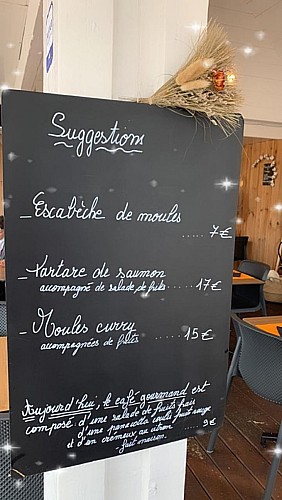 Suggestions
_Escabèche de moules
..... 7€
_Tartare de saumon
accompagné de salade de frites ...... 17€
_Moules curry
accompagnées de frites ..... 15€
Aujourd'hui, le café gourmand est
composé d'une salade de fruits frais
d'une panacotta coulis fruit rouge
et d'un crémeux au citron
fait maison. ..... 9€